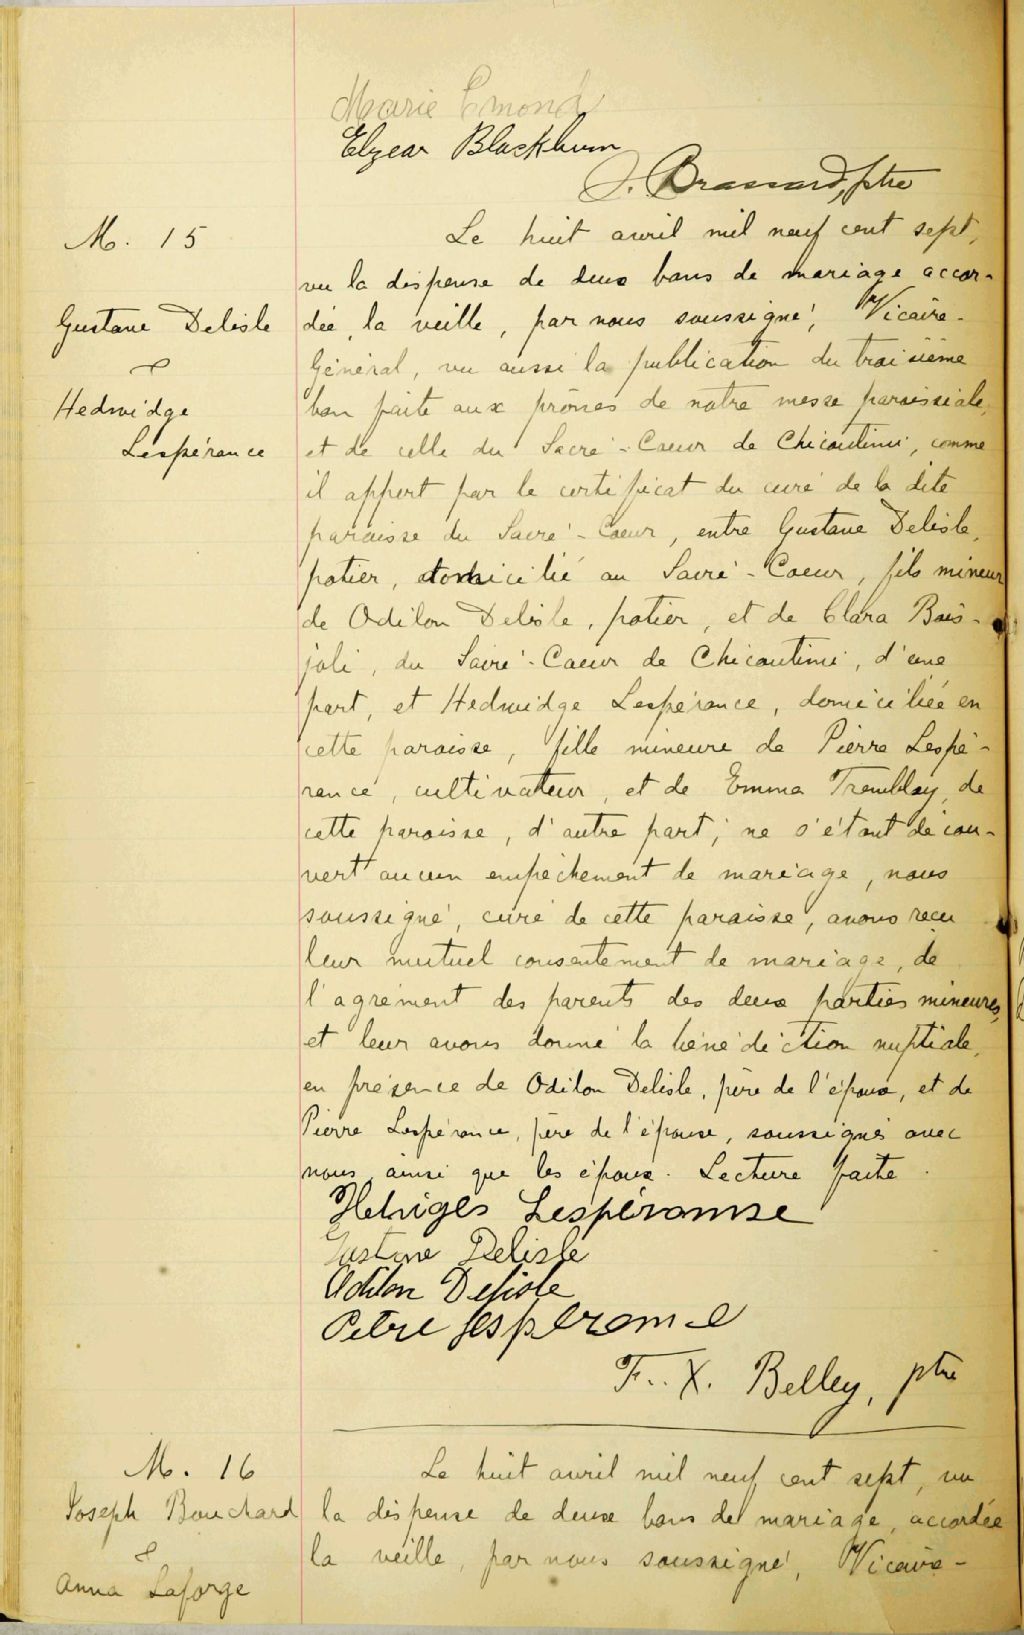 Marie Emond
Elzear Blackburn
J. Brassard, ptre
M. 15
Gustave Delisle
&
Hedwidge
Lespérance
Le huit avril mil neuf cent sept,
vu la dispense de deux bans de mariage accor-
dée la veille, par nous soussigné, Vicaire-
Général, vu aussi la publication du troisième
ban faite aux prônes de notre messe paroissiale,
et de celle du Sacré-Coeur de Chicoutimi, comme
il appert par le certificat du curé de la dite
paroisse du Sacré-Coeur, entre Gustave Delisle,
potier, domicilié au Sacré-Coeur, fils mineur
de Odilon Delisle, potier, et de Clara Bois-
joli, du Sacré-Coeur de Chicoutimi, d'une
part, et Hedwidge Lespérance, domiciliée en
cette paroisse, fille mineure de Pierre Lespé-
rance, cultivateur, et de Emma Tremblay, de
cette paroisse, d'autre part; ne s'étant décou-
vert aucun empêchement de mariage, nous
soussigné, curé de cette paroisse, avons recu
leur mutuel consentement de mariage, de
l'agrément des parents des deux parties mineures,
et leur avons donné la bénédiction nuptiale,
en présence de Odilon Delisle, père de l'époux, et de
Pierre Lespérance, père de l'épouse, soussignés avec
nous ainsi que les époux. Lecture faite.
Hedviges Lespéranse
Gustave Delisle
Odilon Delisle
Petre Lesperance
F.. X. Belley, ptre
M. 16
Joseph Bouchard
&
Anna Laforge
Le huit avril mil neuf cent sept, vu
la dispense de deux bans de mariage, accordée
la veille, par nous soussigné, Vicaire-